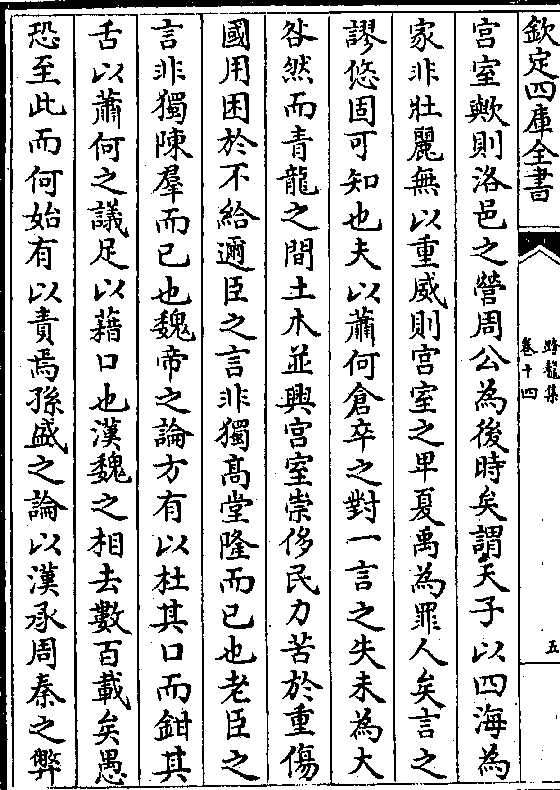 欽定四庫全書
蛟龍集
卷十四
五
宮室歟則洛邑之營周公為後時矣謂天子以四海為
家非壯麗無以重威則宮室之卑夏禹為罪人矣言之
謬悠固可知也夫以蕭何倉卒之對一言之失未為大
咎然而青龍之間土木並興宮室崇侈民力苦於重傷
國用困於不給邇臣之言非獨高堂隆而已也老臣之
言非獨陳羣而已也魏帝之論方有以杜其口而鉗其
舌以蕭何之議足以藉口也漢魏之相去數百載矣愚
恐至此而何始有以責焉孫盛之論以漢承周秦之弊